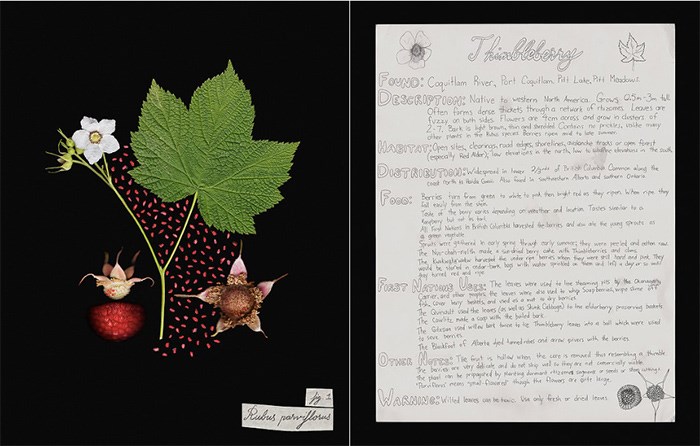 fig 1
Rubus parviflorus
Thimbleberry
FOUND: Coquitlam River, Port Coquitlam. Pitt Lake, Pitt Meadows
DESCRIPTION: Native to western North America. Grows 0.5m-3m tall.
Often forms dense thickets through a network of rhizomes. Leaves are
fuzzy on both sides. Flowers are across and grow in clusters of
2-7. Bark is light brown, thin and shredded. Contains no prickles, unlike many
other plants in the Rubus species. Berries ripen mid to late summer.
HABITAT: Open sites, clearings, road edges, shorelines, avalanche tracks or open forest
(especially Red Alder); low elevations in the north, low to elevations in the south
DISTRIBUTION: Widespread in lower of British Columbia. Common along the
coast North to Haida Gwaii. Also found in Southwestern Alberta and southern Ontario
FOOD: Berries turn from green to white to pink then bright red as they ripen. When ripe they
fall easily from the stem.
Taste of the berry varies depending on weather and location. Tastes similar to a
Raspberry but not as
All First Nations in British Columbia harvested the berries and also ate the young sprouts as
a green vegetable
Sprouts were gathered in early spring through early summer; they were peeled and eaten raw.
The made a sun-dried berry cake with Thimbleberries and clams.
The harvested the under ripe berries when they were still hard and pink; they
would be stored in cedar-bark bags with water sprinkled on them and left a day or so until
they turned red and ripe.
FIRST NATIONS USES: The leaves were used to line steaming pits by the
Carrier, and other peoples; the leaves were also used to whip Soapberries, wipe slime off
fish, cover berry baskets, and used as a mat to dry berries.
The Quinault used the leaves (as well as Skunk Cabbage) to line elderberry preserving baskets
The Cowlitz made a soap with the boiled bark.
The used willow bark twine to tie Thimbleberry leaves into a ball which were used
to berries.
The Blackfoot of Alberta dyed tanned robes and arrow quivers with the berries.
OTHER NOTES: The fruit is hollow when the core is removed thus resembling a thimble
The berries are very delicate and do not ship well so they are not commercially viable.
The plant can be propagated by planting dormant rhizomes, or seeds or stem cuttings.
'Parviflorus' means 'small-flowered' though the flowers are quite large.
WARNING: Wilted leaves can be toxic. Use only fresh or dried leaves.